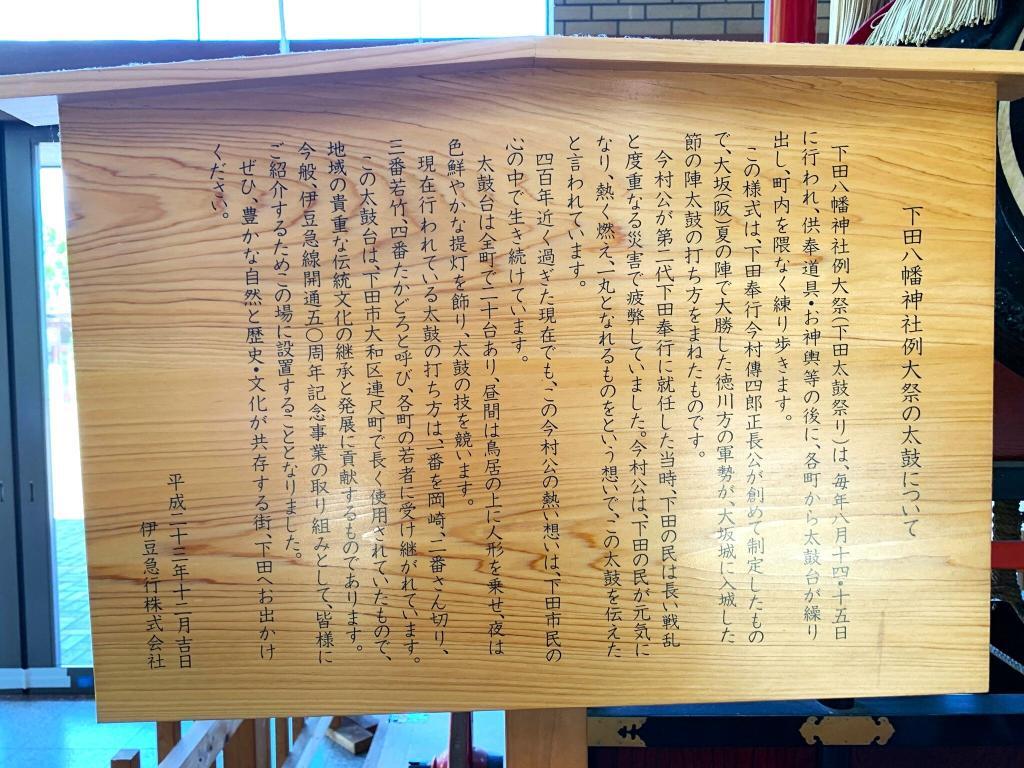 下田八幡神社例大祭の太鼓について
下田八幡神社例大祭(下田太鼓祭り)は、毎年八月十四・十五日
に行われ、供奉道具・お神輿等の後に、各町から太鼓台が繰り
出し、町内を隈なく練り歩きます。
この様式は、下田奉行今村傳四郎正長公が創めて制定したもの
で、大坂(阪)夏の陣で大勝した徳川方の軍勢が、大坂城に入城した
節の陣太鼓の打ち方をまねたものです。
今村公が第二代下田奉行に就任した当時、下田の民は長い戦乱
と度重なる災害で疲弊していました。今村公は、下田の民が元気に
なり、熱く燃え、一丸となれるものをという想いで、この太鼓を伝えた
と言われています。
四百年近く過ぎた現在でも、この今村公の熱い想いは、下田市民の
心の中で生き続けています。
太鼓台は全町で二十台あり、昼間は鳥居の上に人形を乗せ、夜は
色鮮やかな提灯を飾り、太鼓の技を競います。
現在行われている太鼓の打ち方は、一番を岡崎、二番さん切り、
三番若竹、四番たかどろと呼び、各町の若者に受け継がれています。
この太鼓台は、下田市大和区連尺町で長く使用されていたもので、
地域の貴重な伝統文化の継承と発展に貢献するものであります。
今般、伊豆急線開通五〇周年記念事業の取り組みとして、皆様に
ご紹介するためこの場に設置することとなりました。
ぜひ、豊かな自然と歴史・文化が共存する街、下田へお出かけ
ください。
平成二十三年十二月吉日
伊豆急行株式会社